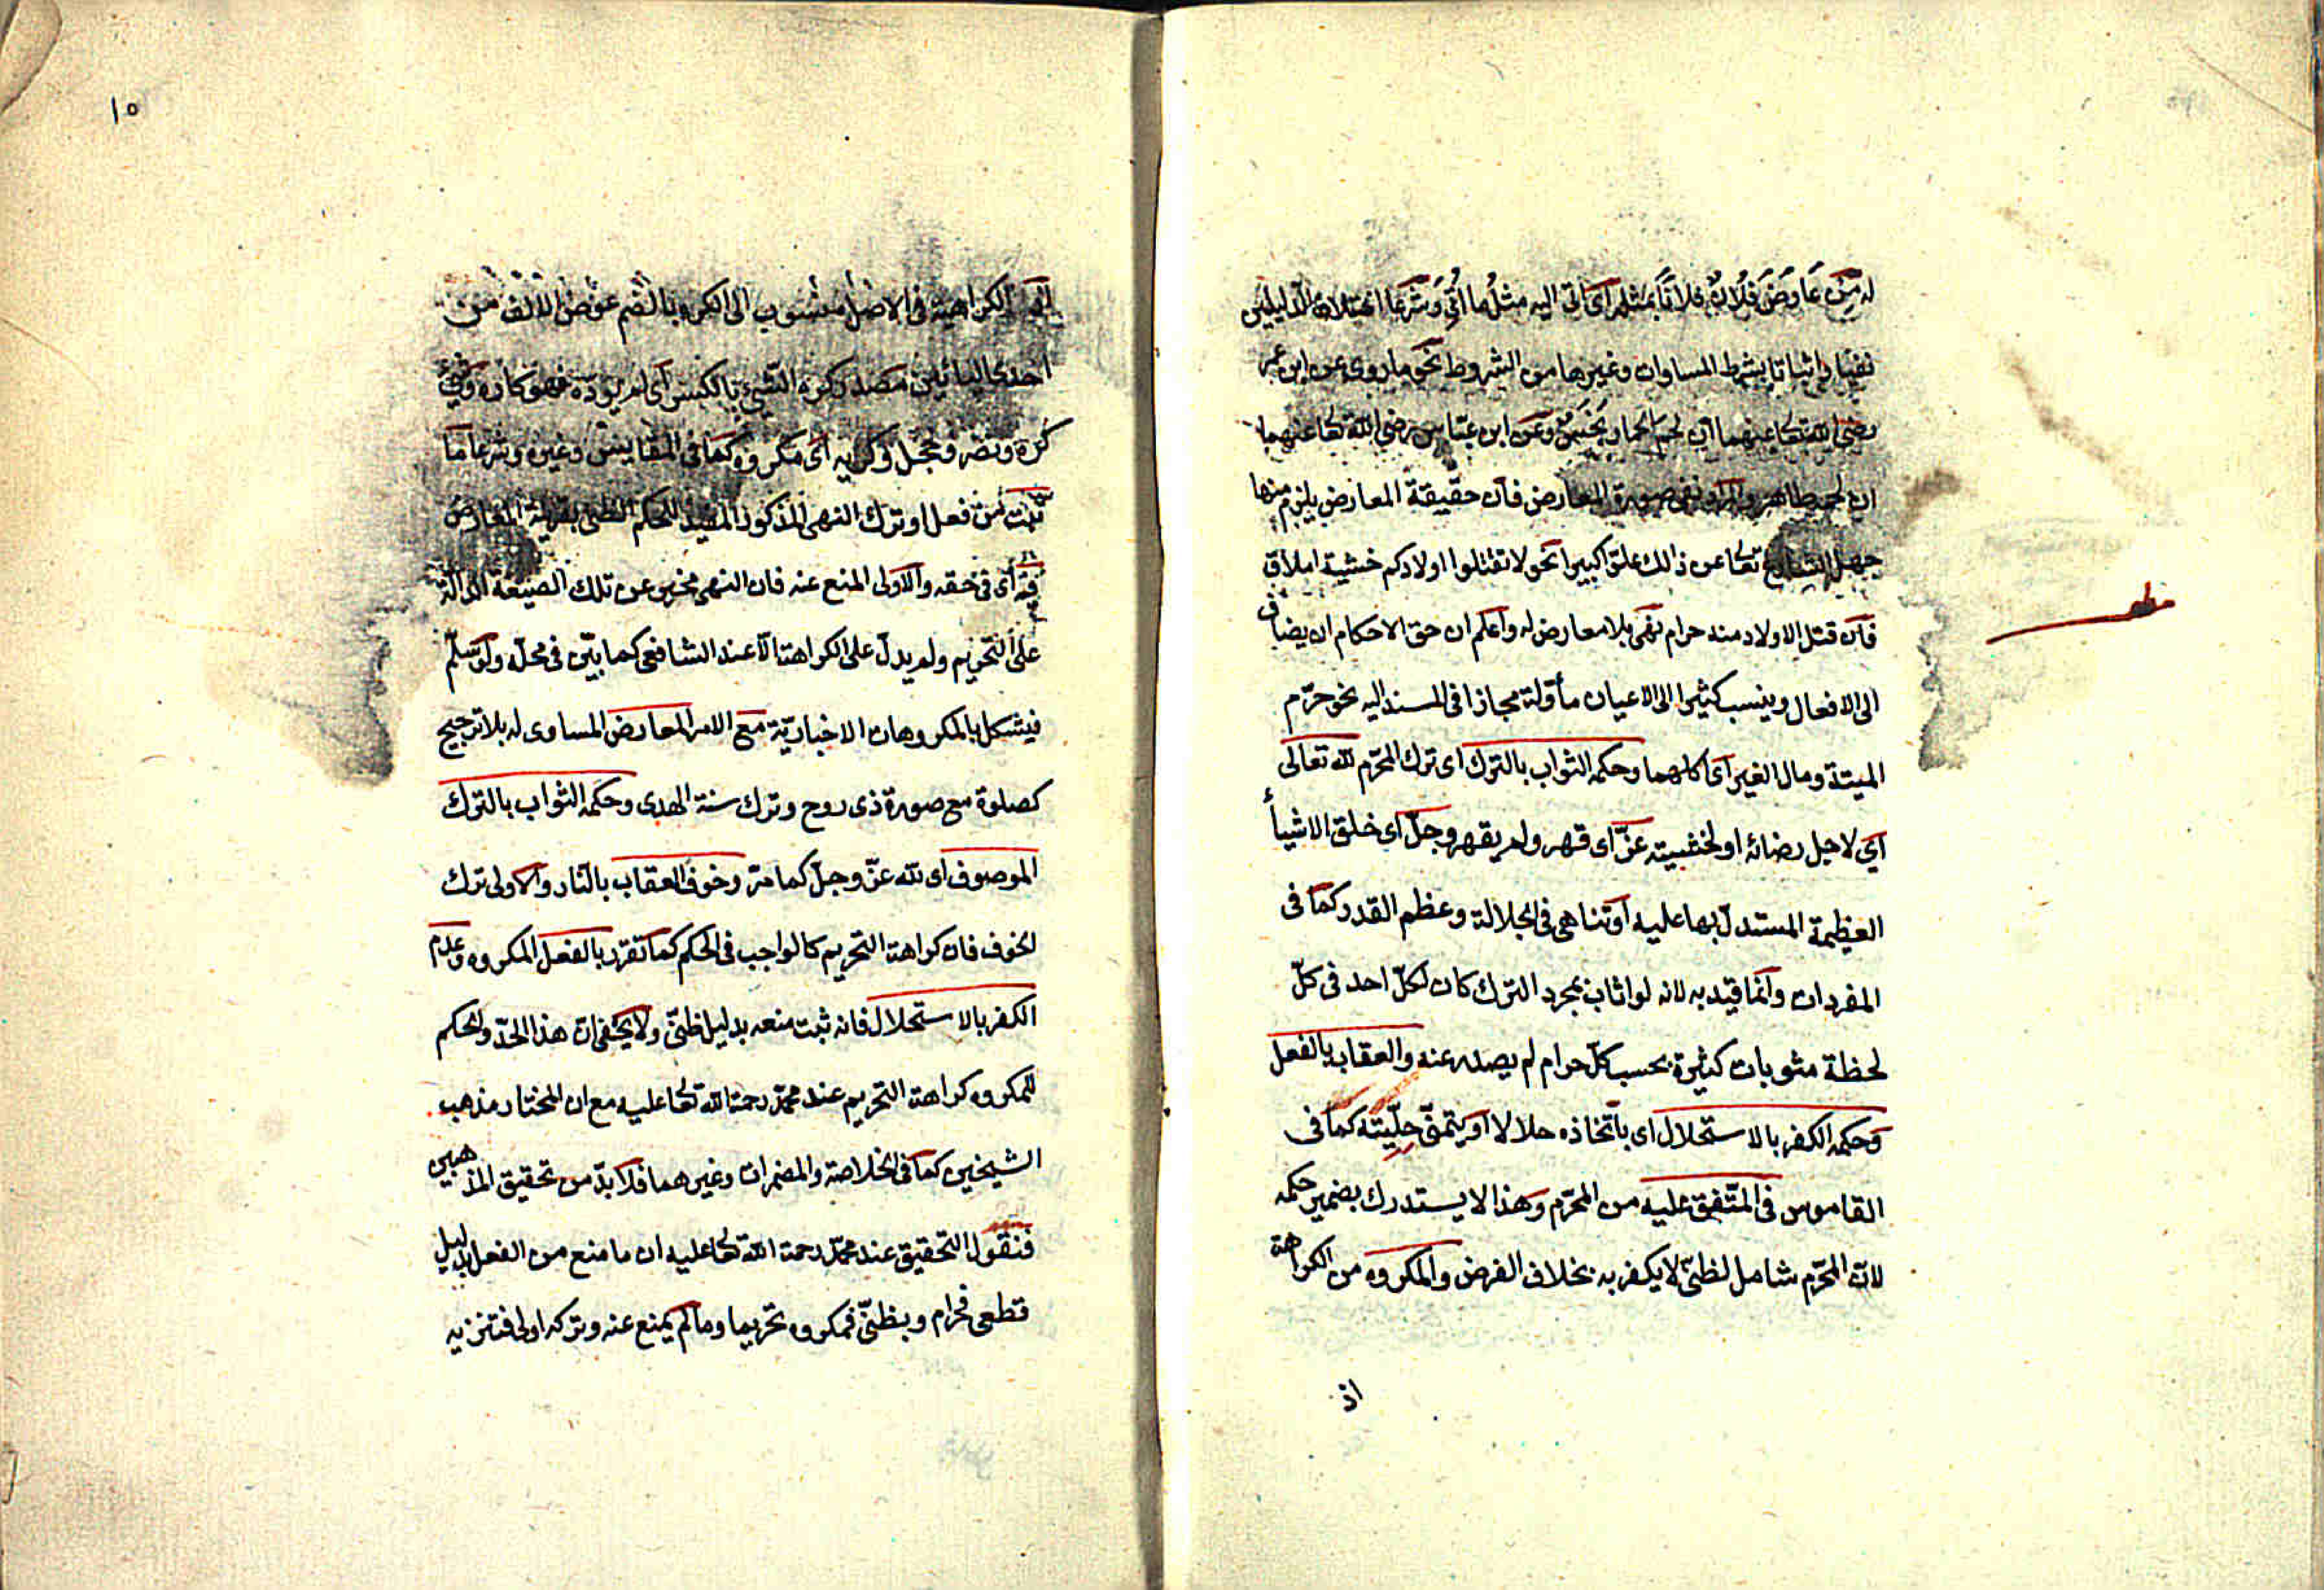 له من عَاوَضَ فُلَانٌ فلانًا بمثله اى اتى اليه مثلُ ما اُتى وشرعا اختلاف الدليلين
نفيا واثباتا بشرط المساوات وغيرها من الشروط نحو ما روى عن ابن عمر
رضى الله تعا عنهما ان لحم الحمار نجس وعن ابن عباس رضى الله تعا عنهما
ان لحمه طاهر والمراد نفى صورة المعارض فان حقيقة المعارض يلزم منها
جهل الشارع تعا عن ذالك علوّا كبيرا نحو لا تقتلوا اولادكم خشية املاق
فان قتل الاولاد منه حرام نهى بلا معارض له واعلم ان حق الاحكام ان يضاف
الى الافعال وينسب كثيرا الى الاعيان مأولة مجازا فى المسند اليه نحو حرّم
الميتة ومال الغير اى اكلهما وحكمه الثواب بالترك اى ترك المحرّم لله تعالى
اى لاجل رضائه او لخشيته عزّ اى قهر ولم يقهر وجلّ اى خلق الاشيأ
العظيمة المستدلّ بها عليه او تناهى فى الجلالة وعظم القدر كما فى
المفردات وانما قيد به لانه لو اثاب بمجرد الترك كان لكلّ احد فى كلّ
لحظة مثوبات كثيرة بحسب كلّ حرام لم يصدر عنه والعقاب بالفعل
وحكمه الكفر بالاستحلال اى باتخاذه حلالا او يتمنّى حلّيته كما فى
القاموس فى المتّفق عليه من المحرّم وهذا لا يستدرك بضمير حكمه
لان المحرّم شامل لظنىّ لا يكفر به بخلاف الفرض والمكروه من الكراهة
اذ
١٥
الكراهية فى الاصل منسوب الى الكره بالضم عوض الالف من
احدى اليائين مصدر كره الشئ بالكسر اى لم يودّه فهو كاره وشئ
كره ونصر وخجل وكريه اى مكروه كما فى المقاييس وغيره وشرعا ما
ثبت من فعل او ترك النهى المذكور المفيد للحكم الظنى بقرينة المعارض
فيه اى فى حقه والاولى المنع عنه فان النهى مخبر عن تلك الصيغة الدالة
على التحريم ولم يدلّ على الكراهة الا عند الشافعى كما بيّن فى محلّه ولو سلّم
فيشكل بالمكروهات الاخباريّة مع الامر المعارض المساوى له بلا ترجيح
كصلوة مع صورة ذى روح وترك سنة الهدى وحكمه الثواب بالترك
الموصوف اى لله عزّ وجلّ كما مرّ وخوف العقاب بالنار والاولى ترك
الخوف فان كراهة التحريم كالواجب فى الحكم كما تقرر بالفعل المكروه وعدم
الكفر بالاستحلال فانه ثبت منعه بدليل ظنىّ ولا يخفى ان هذا الحدّ والحكم
للمكروه كراهة التحريم عند محمّد رحمة الله تعا عليه مع ان المختار مذهب
الشيخين كما فى الخلاصة والمضمرات وغيرهما فلا بدّ من تحقيق المذهبين
فنقول التحقيق عند محمّد رحمة الله تعا عليه ان ما منع من الفعل بدليل
قطعى فحرام وبظنىّ فمكروه تحريما وما لم يمنع عنه وتركه اولى فتنزيه